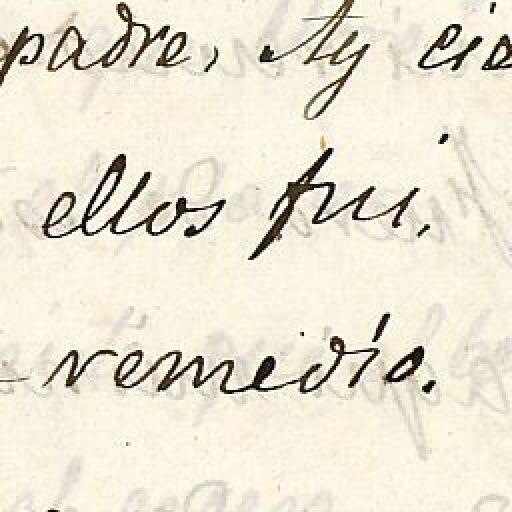 padre, Ay cie
ellos fui.
remedio.